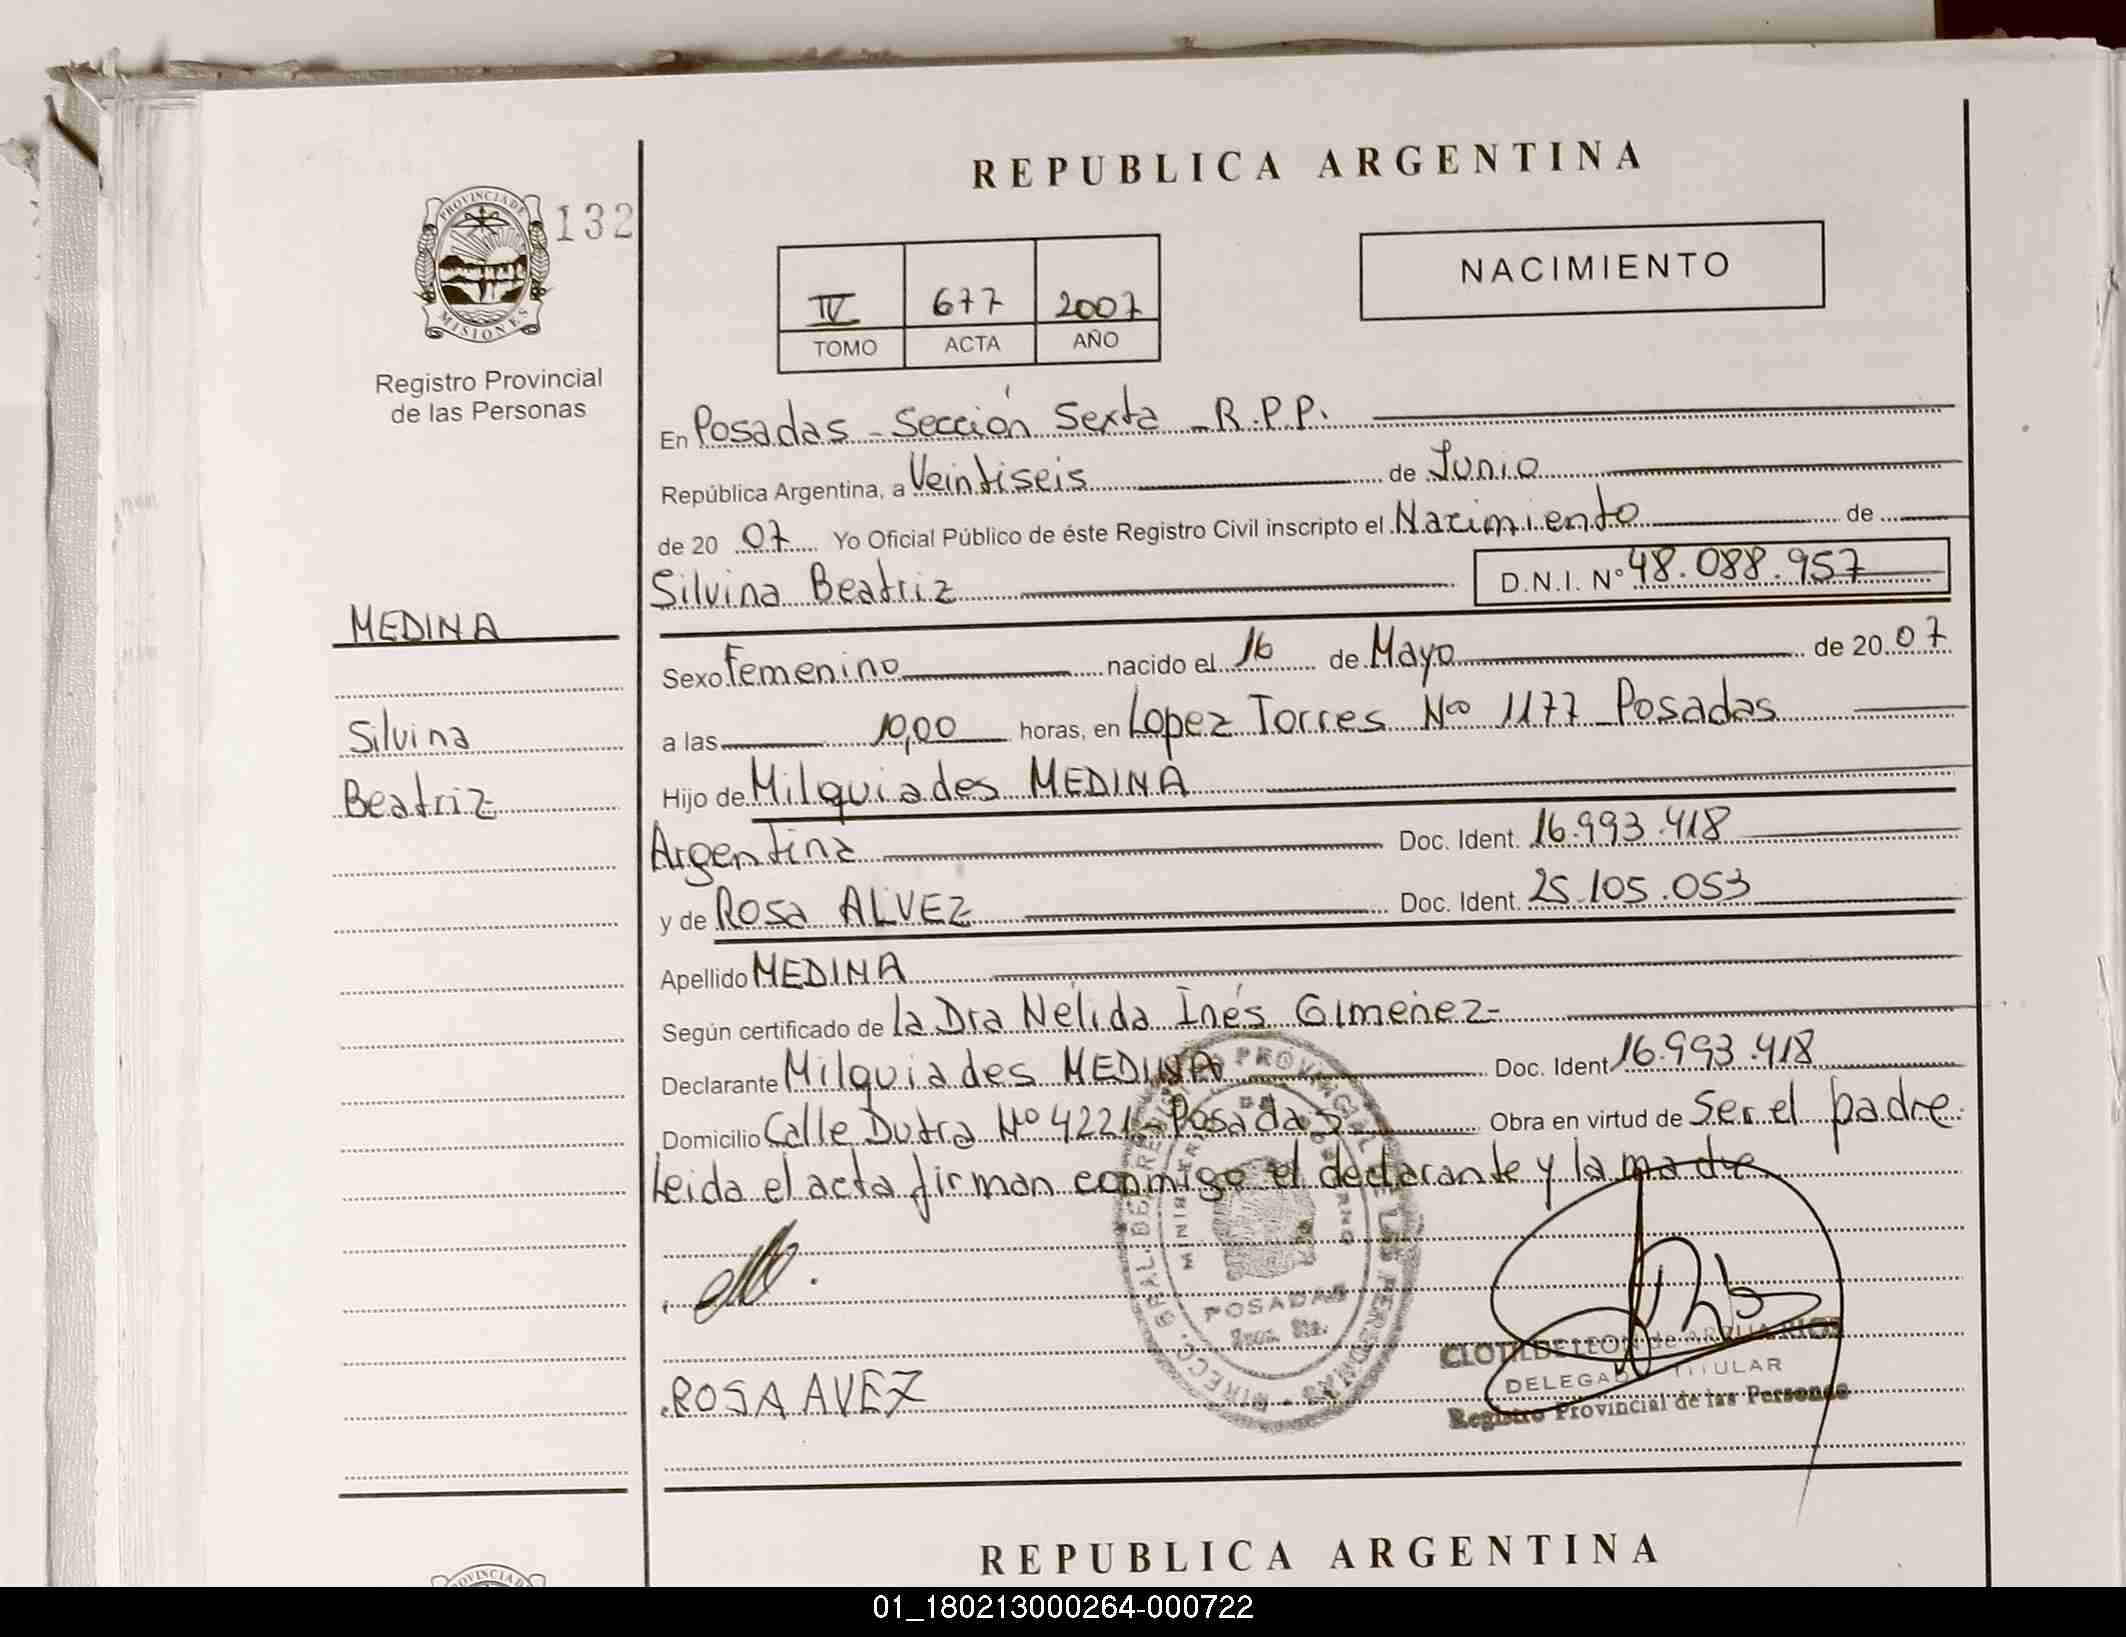 REPUBLICA ARGENTINA
PROVINCIA DE
MISIONES
132
Registro Provincial
de las Personas
NACIMIENTO
IV 677 2007
TOMO ACTA AÑO
En Posadas - Sección Sexta - R.P.P.
República Argentina, a Veintiseis de Junio
de 20 07 Yo Oficial Público de éste Registro Civil inscripto el Nacimiento de
Silvina Beatriz D.N.I. Nº 48.088.957
MEDINA
Silvina
Beatriz
Sexo Femenino nacido el 16 de Mayo de 20 07
a las 10,00 horas, en Lopez Torres Nº 1177 - Posadas
Hijo de Milquiades MEDINA
Argentina Doc. Ident. 16.993.418
y de Rosa ALVEZ Doc. Ident. 25.105.053
Apellido MEDINA
Según certificado de la Dra Nélida Inés Gimenez-
Declarante Milquiades MEDINA Doc. Ident 16.993.418
Domicilio Calle Dutra Nº 4221 - Posadas Obra en virtud de Ser el padre.
Leida el acta firman conmigo el declarante y la madre
DIRECC. GRAL. DE REGISTRO PROVINCIAL DE LAS PERSONAS
POSADAS
ROSA AVEZ
CLOTILDE LEON de
DELEGADA TITULAR
Registro Provincial de las Personas
REPUBLICA ARGENTINA
01_180213000264-000722